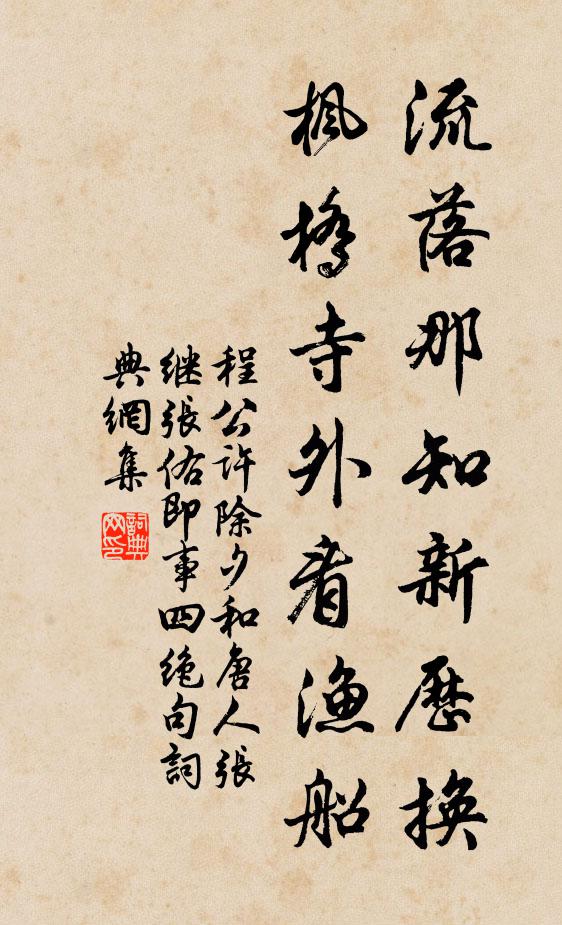 流落那知新歷換
楓橋寺外看漁船
程公許除夕和唐人張
继張佑即事四絶句詞
典網集
詞典
网印